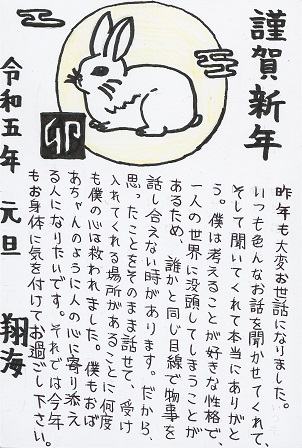 謹賀新年
昨年も大変お世話になりました。
いつも色んなお話を聞かせてくれて、
そして聞いてくれて本当にありがと
う。僕は考えることが好きな性格で、
一人の世界に没頭してしまうことが
あるため、誰かと同じ目線で物事を
話し合えない時があります。だから、
思ったことをそのまま話せて、受け
入れてくれる場所があることに何度
も僕の心は救われました。僕もおば
あちゃんのように人の心に寄り添え
る人になりたいです。それでは今年
もお身体に気を付けてお過ごし下さい。
卯
令和五年 元旦 翔海